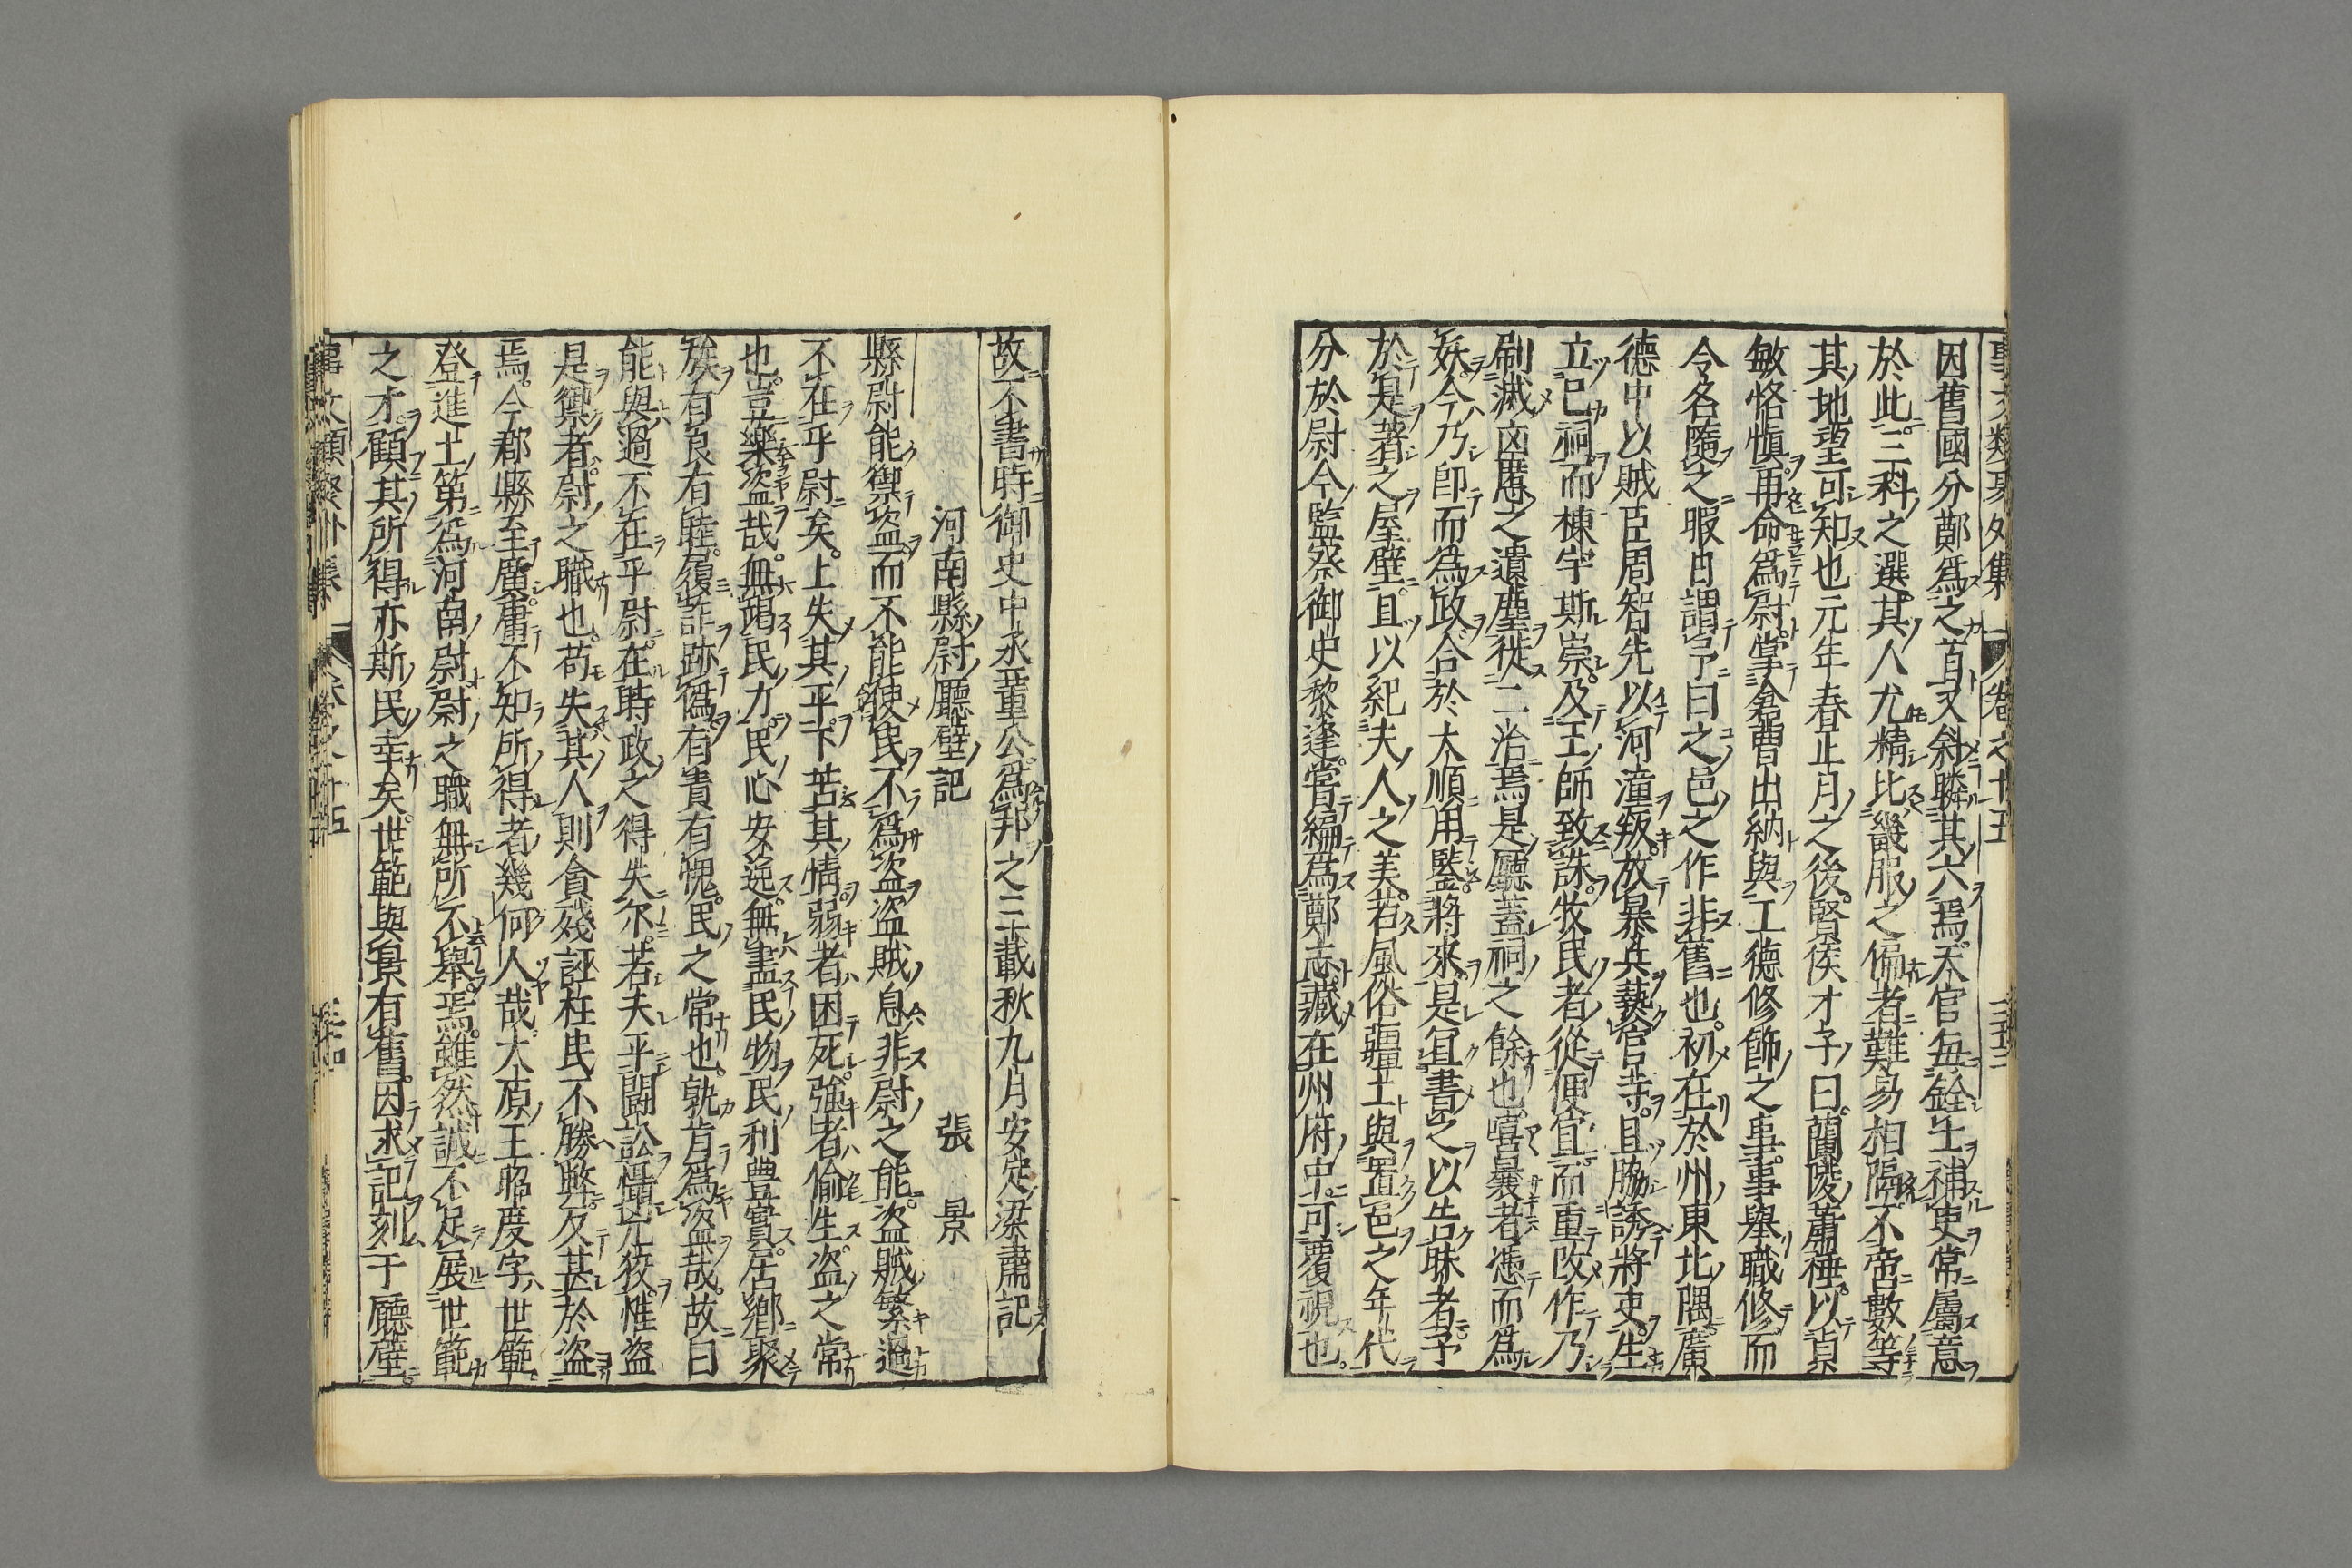 事文類聚外集　卷之十五
因舊國分鄭爲之首又斜驎其六焉天官毎銓士補吏常屬意
於此三科之選其人尤精比畿服之偏者難易相隔不啻數等
其地望可知也元年春正月之後賢侯才子曰蘭陵蕭𡍼以貞
敏恪愼再命爲尉掌倉曹出納與工德修飾之事事舉職修而
令名隨之暇日謂予曰之邑之作非舊也初在於州東北隅廣
德中以賊臣周智先以河潼叛放暴兵爇官寺且脇誘將吏生
立巳祠而棟宇斯崇及王師致誅牧民者從便宜而重改作乃
刷滅凶慝之遺塵徙二治焉是廳蓋祠之餘也嘻曩者憑而爲
妖今乃卽而爲政合於大順用鑒將來是宜書之以告昧者予
於是著之屋壁且以紀夫人之美若風俗疆土與置邑之年代
分於尉今監察御史黎逢嘗編爲鄭志藏在州府中可覆視也
故不書時御史中丞董公爲邦之二載秋九月安定梁肅記
河南縣尉廳壁記　張景
縣尉能禦盜而不能使民不爲盜盜賊息非尉之能盜賊繁過
不在乎尉矣上失其平下苦其情弱者困死強者偷生盜之常
也豈樂盜哉無竭民力民心安逸無盡民物民利豊實居鄉聚
族有良有睦履詐跡僞有貴有愧民之常也孰肯爲盜哉故曰
能與過不在乎尉在時政之得失尓若夫平鬪訟愼亢狡惟盜
是禦者尉之職也苟失其人則貪殘誣枉民不勝弊又甚於盜
焉今郡縣至廣庸不知所得者幾何人哉太原王昭度字世範
登進士第爲河南尉尉之職無所不舉焉雖然誠不足展世範
之才顧其所得亦斯民幸矣世範與景有舊因求記刻于廳壁
事文類聚外集　卷之十五